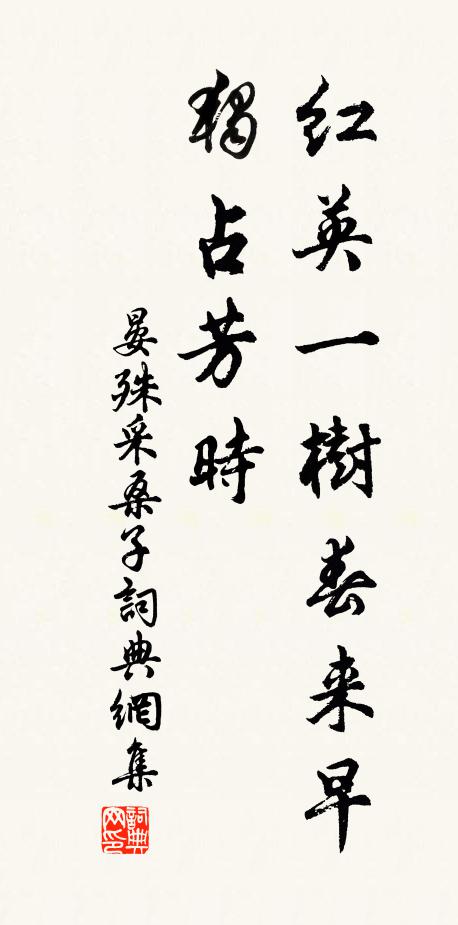 红英一樹春来早
獨占芳時
晏殊采桑子詞典網集
詞典网印